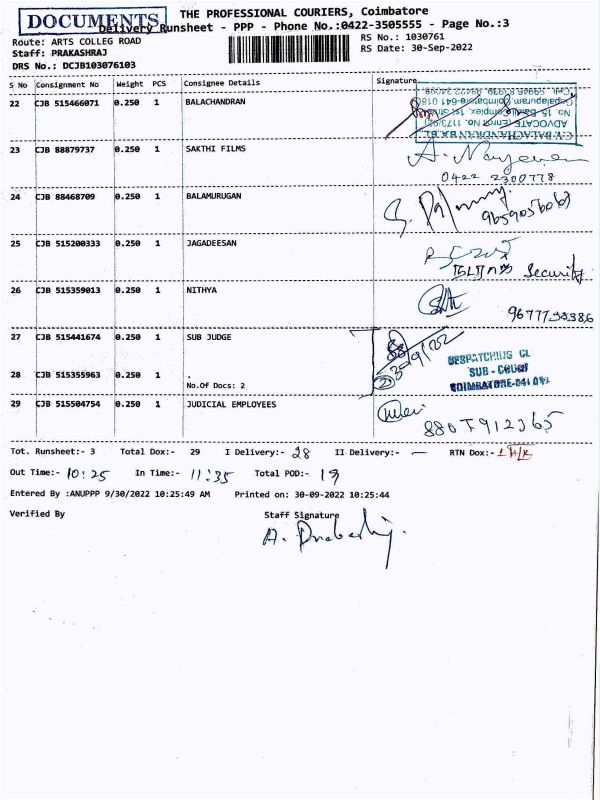 DOCUMENTS
THE PROFESSIONAL COURIERS, Coimbatore
Delivery Runsheet - PPP - Phone No.:0422-3505555 - Page No.:3
Route: ARTS COLLEG ROAD
RS No.: 1030761
Staff: PRAKASHRAJ
RS Date: 30-Sep-2022
DRS No.: DCJB103076103
S No Consignment No Weight PCS Consignee Details Signature
22 CJB 515466071 0.250 1 BALACHANDRAN
23 CJB 88879737 0.250 1 SAKTHI FILMS
0422 2300778
24 CJB 88468709 0.250 1 BALAMURUGAN
25 CJB 515200333 0.250 1 JAGADEESAN
Security
26 CJB 515359013 0.250 1 NITHYA
27 CJB 515441674 0.250 1 SUB JUDGE
28 CJB 515355963 0.250 1 .
No.Of Docs: 2
SUB - COURT
29 CJB 515504754 0.250 1 JUDICIAL EMPLOYEES
8807912365
Tot. Runsheet:- 3 Total Dox:- 29 I Delivery:- 28 II Delivery:- — RTN Dox:- 1
Out Time:- 10:25 In Time:- 11:35 Total POD:- 19
Entered By :ANUPPP 9/30/2022 10:25:49 AM Printed on: 30-09-2022 10:25:44
Verified By Staff Signature